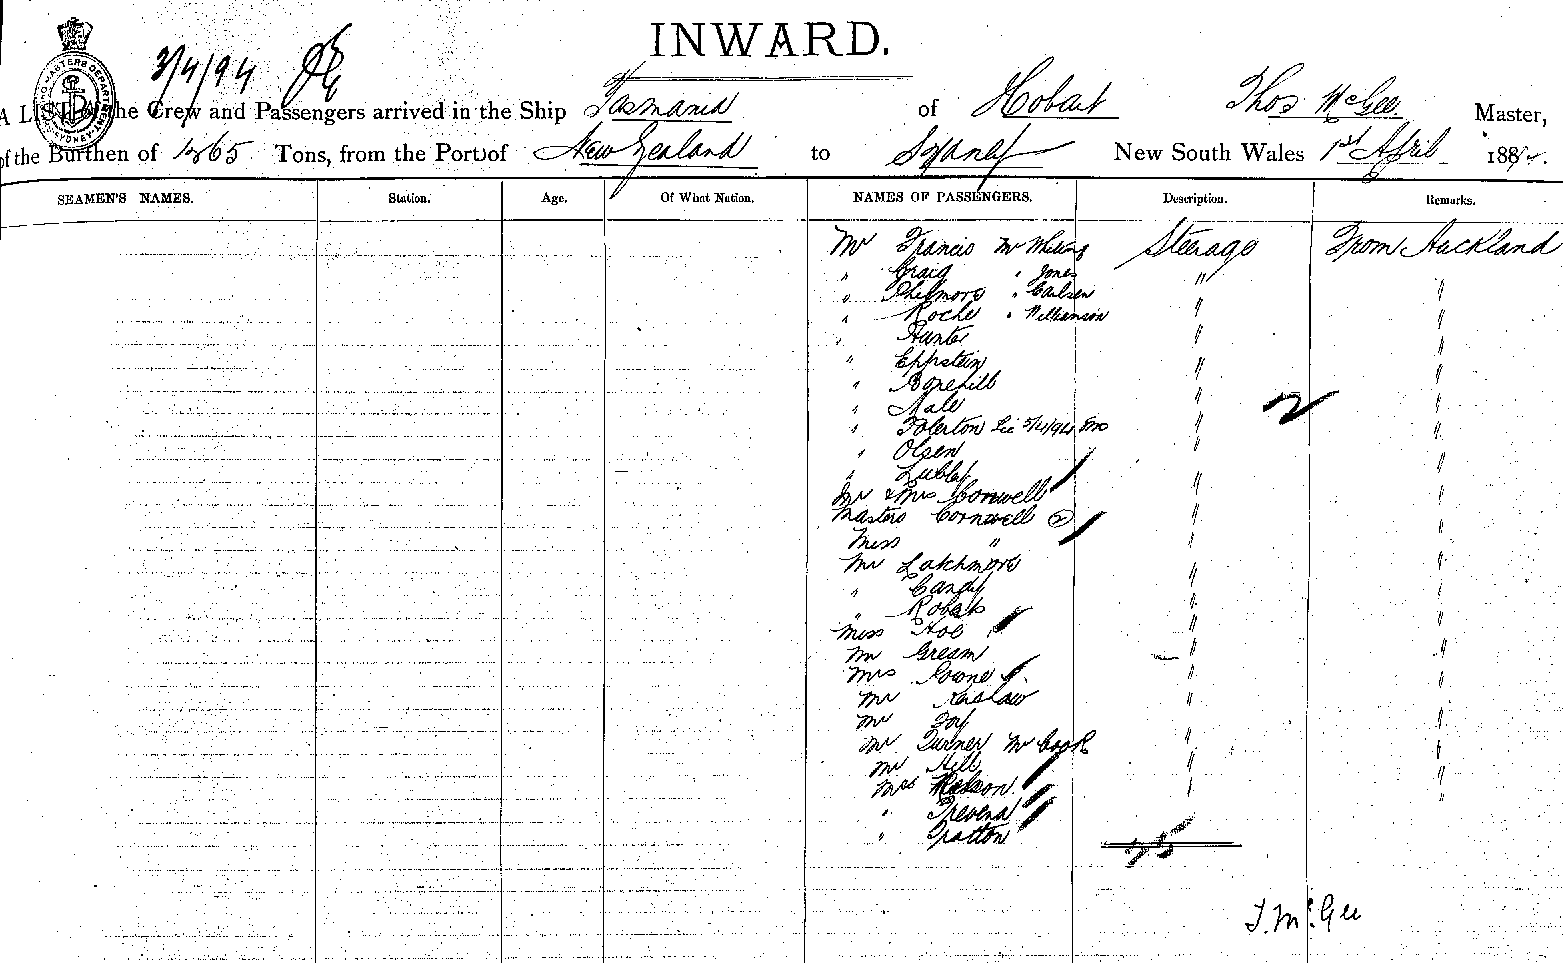 INWARD.
3/4/94
A LIST of the Crew and Passengers arrived in the Ship Tasmania of Hobart Thos McGee Master,
of the Burthen of 1265 Tons, from the Port of New Zealand to Sydney New South Wales 1st April 188
SEAMEN'S NAMES. Station. Age. Of What Nation. NAMES OF PASSENGERS. Description. Remarks.
Mr Francis Mr Whiting Steerage From Auckland
" Craig " Jones " "
" Philmore " Carlsen " "
" Roche " Williamson " "
" Hunter " "
" Eppstein " "
" Bonehill " "
" Nale " "
" Folerton See 3/4/94 " "
" Olsen " "
" "
Mr & Mrs Cornwell " "
Masters Cornwell 2 " "
Miss " " "
Mr Latchmore " "
" Candy " "
" Robats " "
Miss Hoe " "
Mr Gream " "
Mrs " "
Mr Kershaw
Mr Foy " "
Mr Turner Mr Cook " "
Mr Hill " "
Mrs " "
" Trevena
" Gratton
35
T. McGee